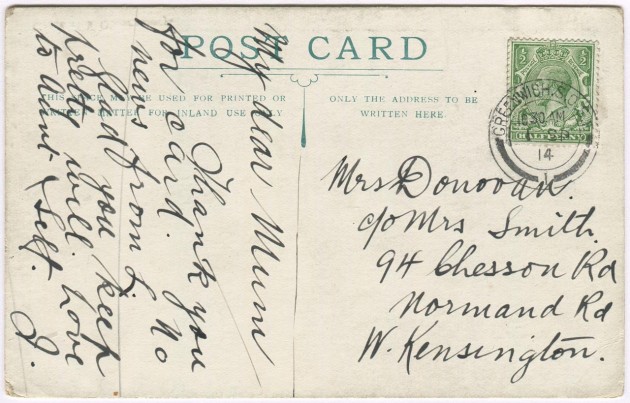 POST CARD
THIS SPACE MAY BE USED FOR PRINTED OR
WRITTEN MATTER FOR INLAND USE ONLY
ONLY THE ADDRESS TO BE
WRITTEN HERE
½ ½
HALFPENNY
GREENWICH. S.O.
8.30 AM
14
1
My dear Mum
Thank you
for card. No
news from L
Glad you keep
pretty well. Love
to Aunt & Self.
J.
Mrs Donovan.
c/o Mrs Smith.
94 Chesson Rd
Normand Rd
W. Kensington.